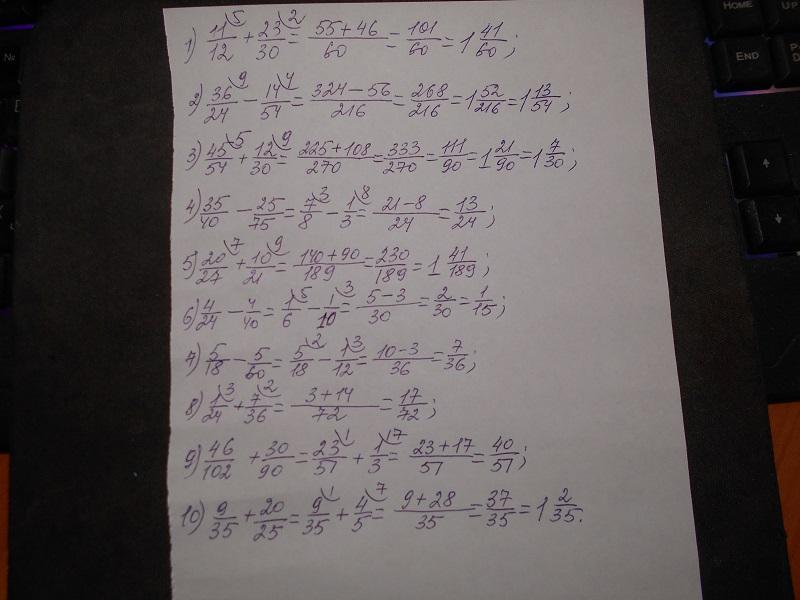 1) 11/12 + 23/30 = (55+46)/60 = 101/60 = 1 41/60;
2) 36/24 − 14/54 = (324−56)/216 = 268/216 = 1 52/216 = 1 13/54;
3) 45/54 + 12/30 = (225+108)/270 = 333/270 = 111/90 = 1 21/90 = 1 7/30;
4) 35/40 − 25/75 = 7/8 − 1/3 = (21−8)/24 = 13/24;
5) 20/27 + 10/21 = (140+90)/189 = 230/189 = 1 41/189;
6) 4/24 − 4/40 = 1/6 − 1/10 = (5−3)/30 = 2/30 = 1/15;
7) 5/18 − 5/60 = 5/18 − 1/12 = (10−3)/36 = 7/36;
8) 1/24 + 7/36 = (3+14)/72 = 17/72;
9) 46/102 + 30/90 = 23/51 + 1/3 = (23+17)/51 = 40/51;
10) 9/35 + 20/25 = 9/35 + 4/5 = (9+28)/35 = 37/35 = 1 2/35.
HOME
END
№